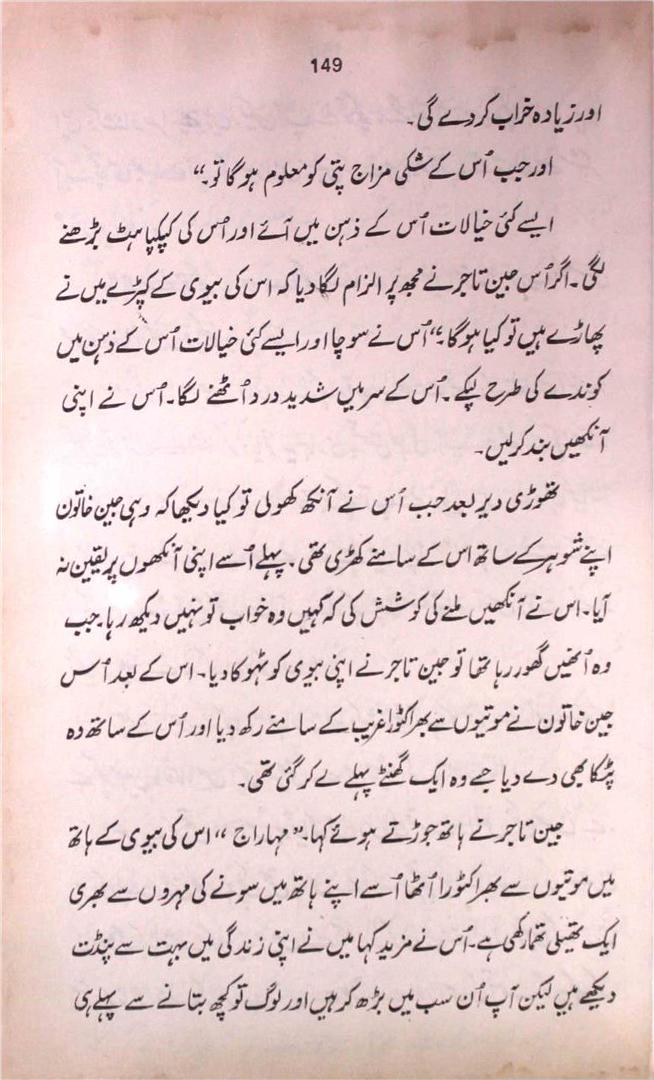 149
اور زیادہ خراب کر دے گی۔
اور جب اُس کے شکی مزاج پتی کو معلوم ہوگا تو۔“
ایسے کئی خیالات اُس کے ذہن میں آئے اور اُس کی کپکپاہٹ بڑھنے
لگی۔ اگر اُس جین تاجر نے مجھ پر الزام لگا دیا کہ اس کی بیوی کے کپڑے میں نے
پھاڑے ہیں تو کیا ہوگا۔“ اُس نے سوچا اور ایسے کئی خیالات اُس کے ذہن میں
کوندے کی طرح لپکے۔ اُس کے سر میں شدید درد اُٹھنے لگا۔ اُس نے اپنی
آنکھیں بند کر لیں۔
تھوڑی دیر بعد جب اُس نے آنکھ کھولی تو کیا دیکھا کہ وہی جین خاتون
اپنے شوہر کے ساتھ اس کے سامنے کھڑی تھی۔ پہلے اُسے اپنی آنکھوں پر یقین نہ
آیا۔ اس نے آنکھیں ملنے کی کوشش کی کہ کہیں وہ خواب تو نہیں دیکھ رہا۔ جب
وہ اُنھیں گھور رہا تھا تو جین تاجر نے اپنی بیوی کو ٹہوکا دیا۔ اس کے بعد اُس
جین خاتون نے موتیوں سے بھرا کٹورا غریب کے سامنے رکھ دیا اور اُس کے ساتھ وہ
پٹکا بھی دے دیا جسے وہ ایک گھنٹے پہلے لے کر گئی تھی۔
جین تاجر نے ہاتھ جوڑتے ہوئے کہا۔ ”مہاراج“ اس کی بیوی کے ہاتھ
میں موتیوں سے بھرا کٹورا اُٹھا اُسے اپنے ہاتھ میں سونے کی مہروں سے بھری
ایک تھیلی تھما رکھی ہے۔ اُس نے مزید کہا میں نے اپنی زندگی میں بہت سے پنڈت
دیکھے ہیں لیکن آپ اُن سب میں بڑھ کر ہیں اور لوگ تو کچھ بتانے سے پہلے ہی